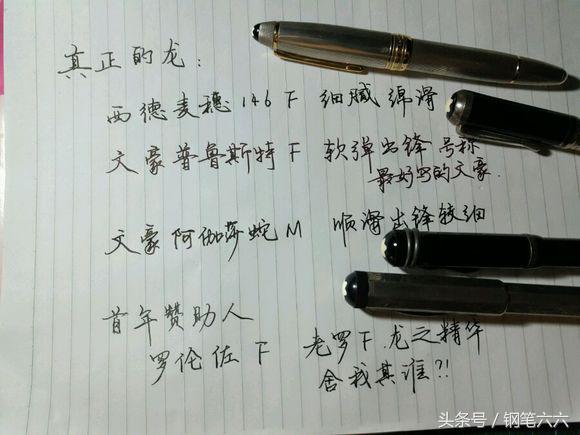 真正的龙：
西德麦穗146 F 细腻绵滑
文豪普鲁斯特 F 软弹出锋 号称
最好写的文豪.
文豪阿伽莎蛇 M 顺滑出锋较细
首年赞助人
罗伦佐 F 老罗 F.龙之精华
舍我其谁?!
头条号 / 钢笔六六